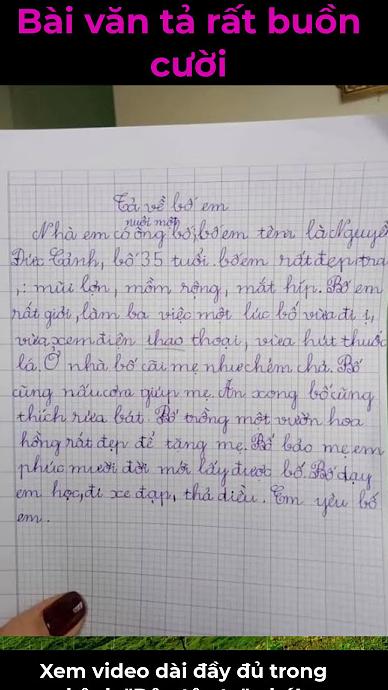 Bài văn tả rất buồn
cười
Tả về bố em
nuôi một
Nhà em có ông bố, bố em tên là Nguyễ
Đức Cảnh, bố 35 tuổi. bố em rất đẹp tra
,: mũi lợn, mồm rộng, mắt híp. Bố em
rất giỏi, làm ba việc một lúc bố vừa đi ị,
vừa xem điện thao thoại, vừa hút thuốc
lá. Ở nhà bố cãi mẹ như chém chả. Bố
cũng nấu cơm giúp mẹ. Ăn xong bố cũng
thích rửa bát. Bố trồng một vườn hoa
hồng rất đẹp để tặng mẹ. Bố bảo mẹ em
phúc mười đời mới lấy được bố. Bố dạy
em học, đi xe đạp, thả diều. Em yêu bố
em.
Xem video dài đầy đủ trong